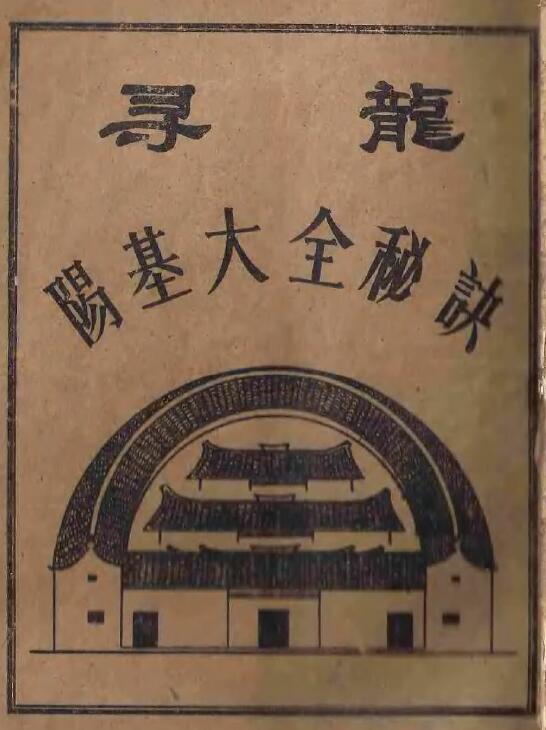 寻龍
陽基大全秘訣